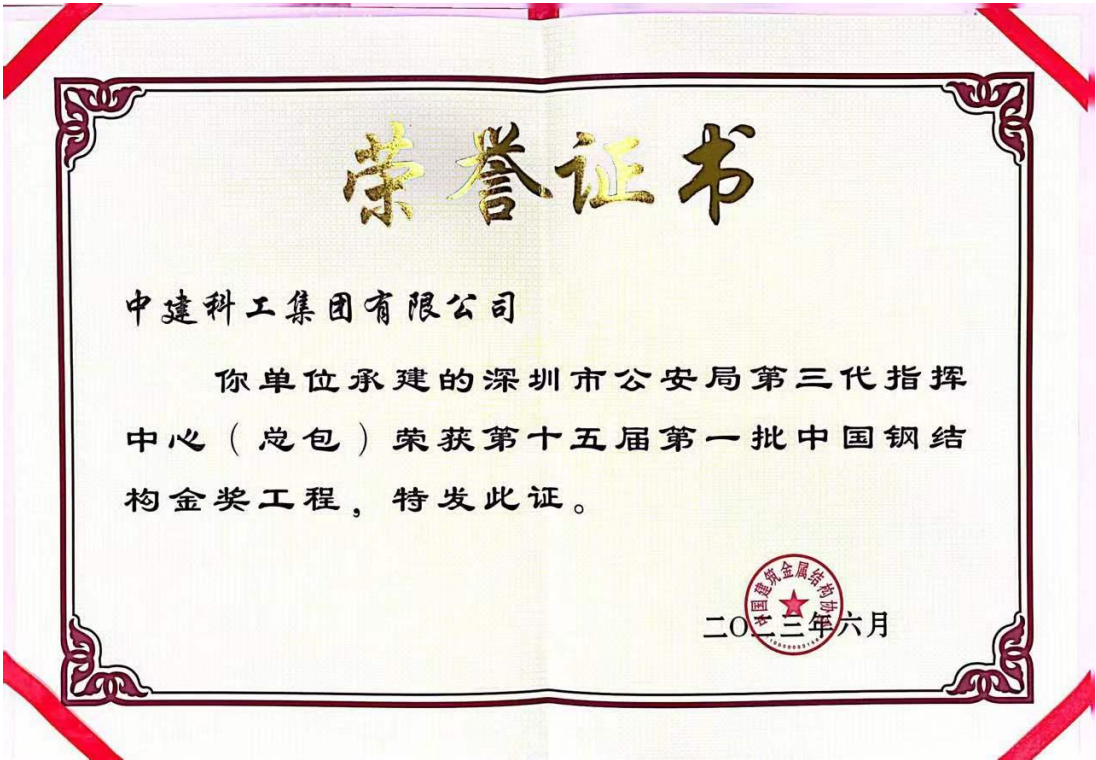 荣誉证书
中建科工集团有限公司
你单位承建的深圳市公安局第三代指挥
中心（总包）荣获第十五届第一批中国钢结
构金奖工程，特发此证。
中国建筑金属结构协会
二〇二三年六月